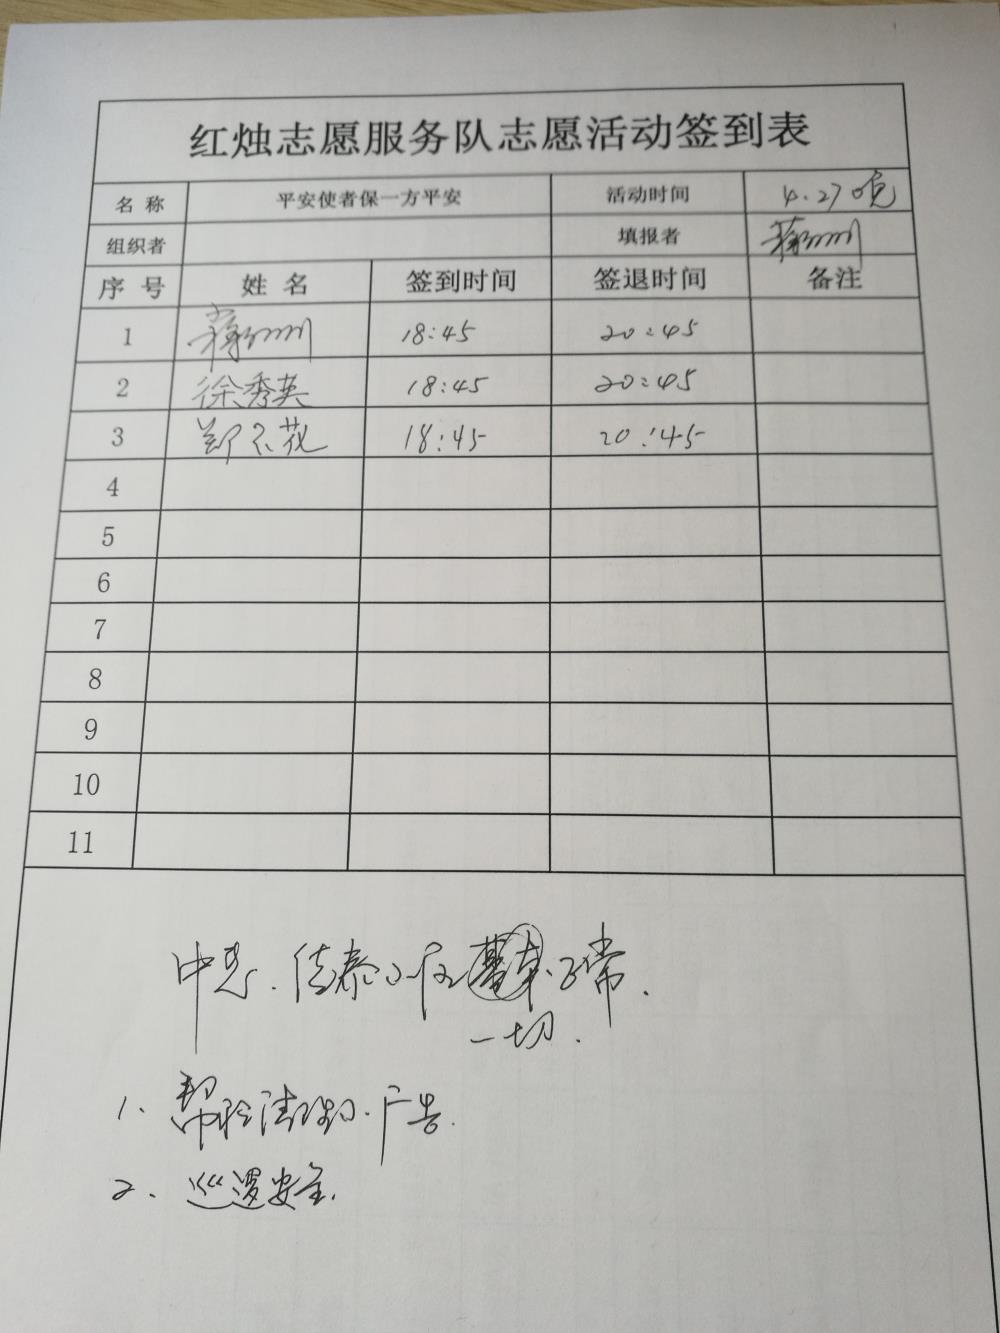 红烛志愿服务队志愿活动签到表
名 称 平安使者保一方平安 活动时间 4.27晚
组织者 填报者
序 号 姓 名 签到时间 签退时间 备注
1 18:45 20:45
2 徐秀英 18:45 20:45
3 郑 花 18:45 20:45
4
5
6
7
8
9
10
11
中 . 佳泰小区 正常.
一切.
1. 帮 清理 广告.
2. 巡逻安全.